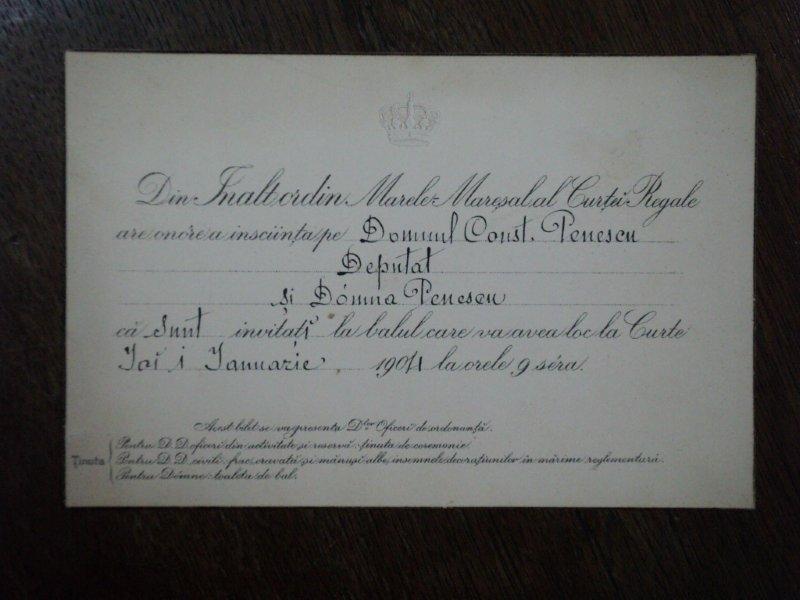 Din Inalt ordin Marele-Mareșal al Curței Regale
are onóre a insciința pe Domnul Const. Penescu
Deputat
și Dómna Penescu
că sunt invitațĭ la balul care va avea loc la Curte
Joĭ 1 Ianuarie 1904 la orele 9 séra.
Acest bilet se va presenta D-lor Oficeri de ordonanță.
Ținuta
Pentru D. D. oficeri din activitate și reservă: ținuta de ceremonie.
Pentru D. D. civili: frac, cravată și mănuși albe, insemnele decorațiunilor in mărime reglementară.
Pentru Dómne: toaleta de bal.